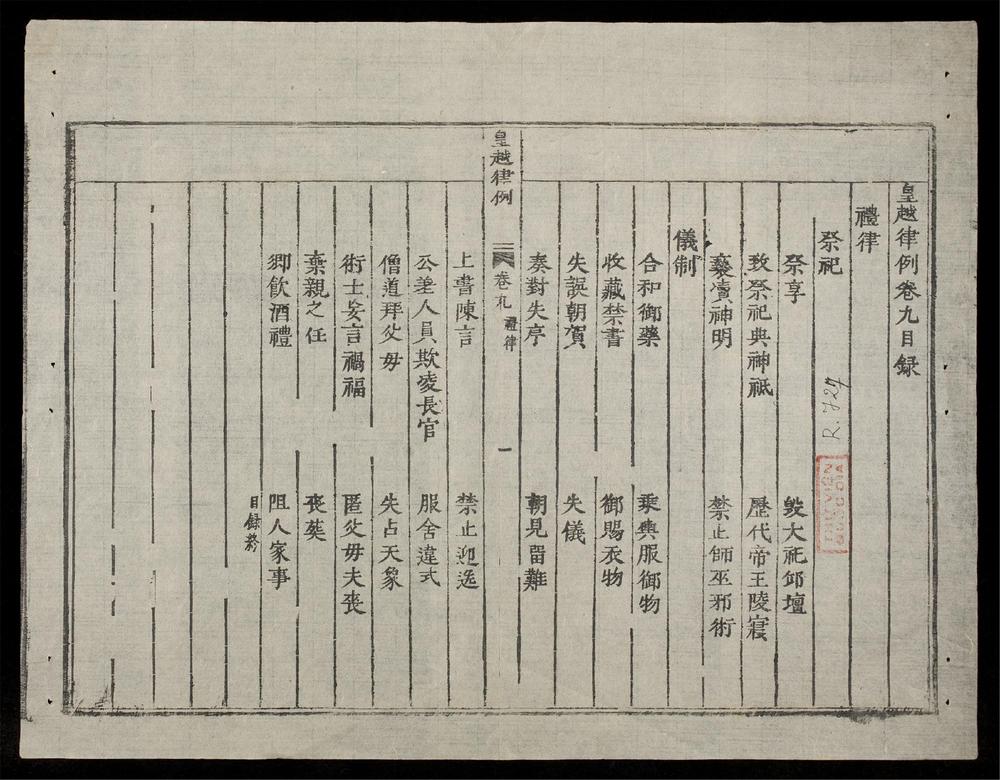 皇越律例卷九目録
禮律
祭祀
祭享 毀大祀邱壇
致祭祀典神祇 歷代帝王陵寢
褻瀆神明 禁止師巫邪術
儀制
合和御藥 乘輿服御物
收藏禁書 御賜衣物
失誤朝賀 失儀
奏對失序 朝見留難
皇越律例 卷九 禮律 一
上書陳言 禁止迎送
公差人員欺凌長官 服舍違式
僧道拜父母 失占天象
術士妄言禍福 匿父母夫喪
棄親之任 喪葬
鄉飲酒禮 阻人家事
目録終
R. 727
THƯ VIỆN
QUỐC GIA